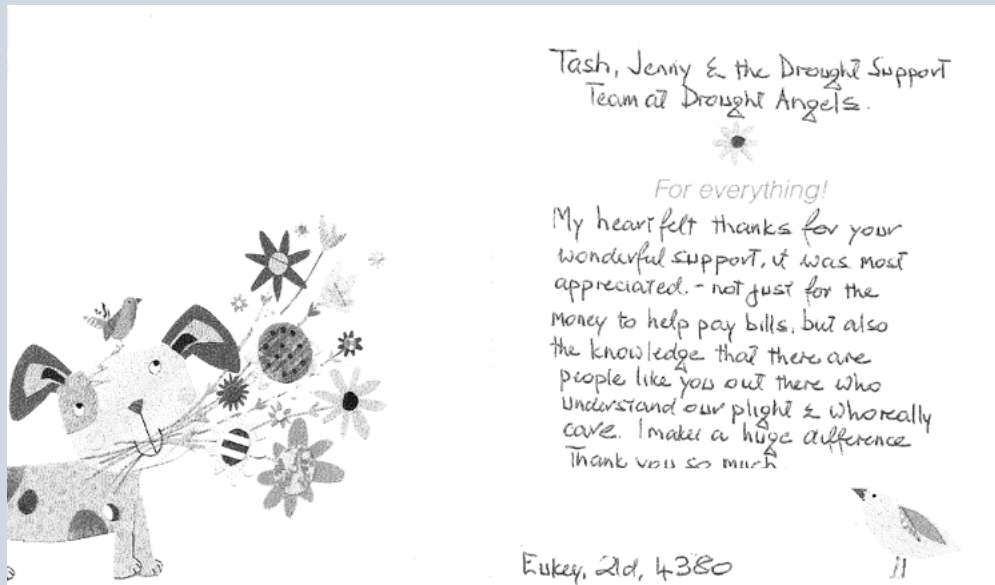 Tash, Jenny & the Drought Support
Team at Drought Angels.
For everything!
My heartfelt thanks for your
wonderful support, it was most
appreciated. - not just for the
money to help pay bills, but also
the knowledge that there are
people like you out there who
understand our plight & who really
care. I makes a huge difference
Thank you so much.
Eukey, Qld, 4380